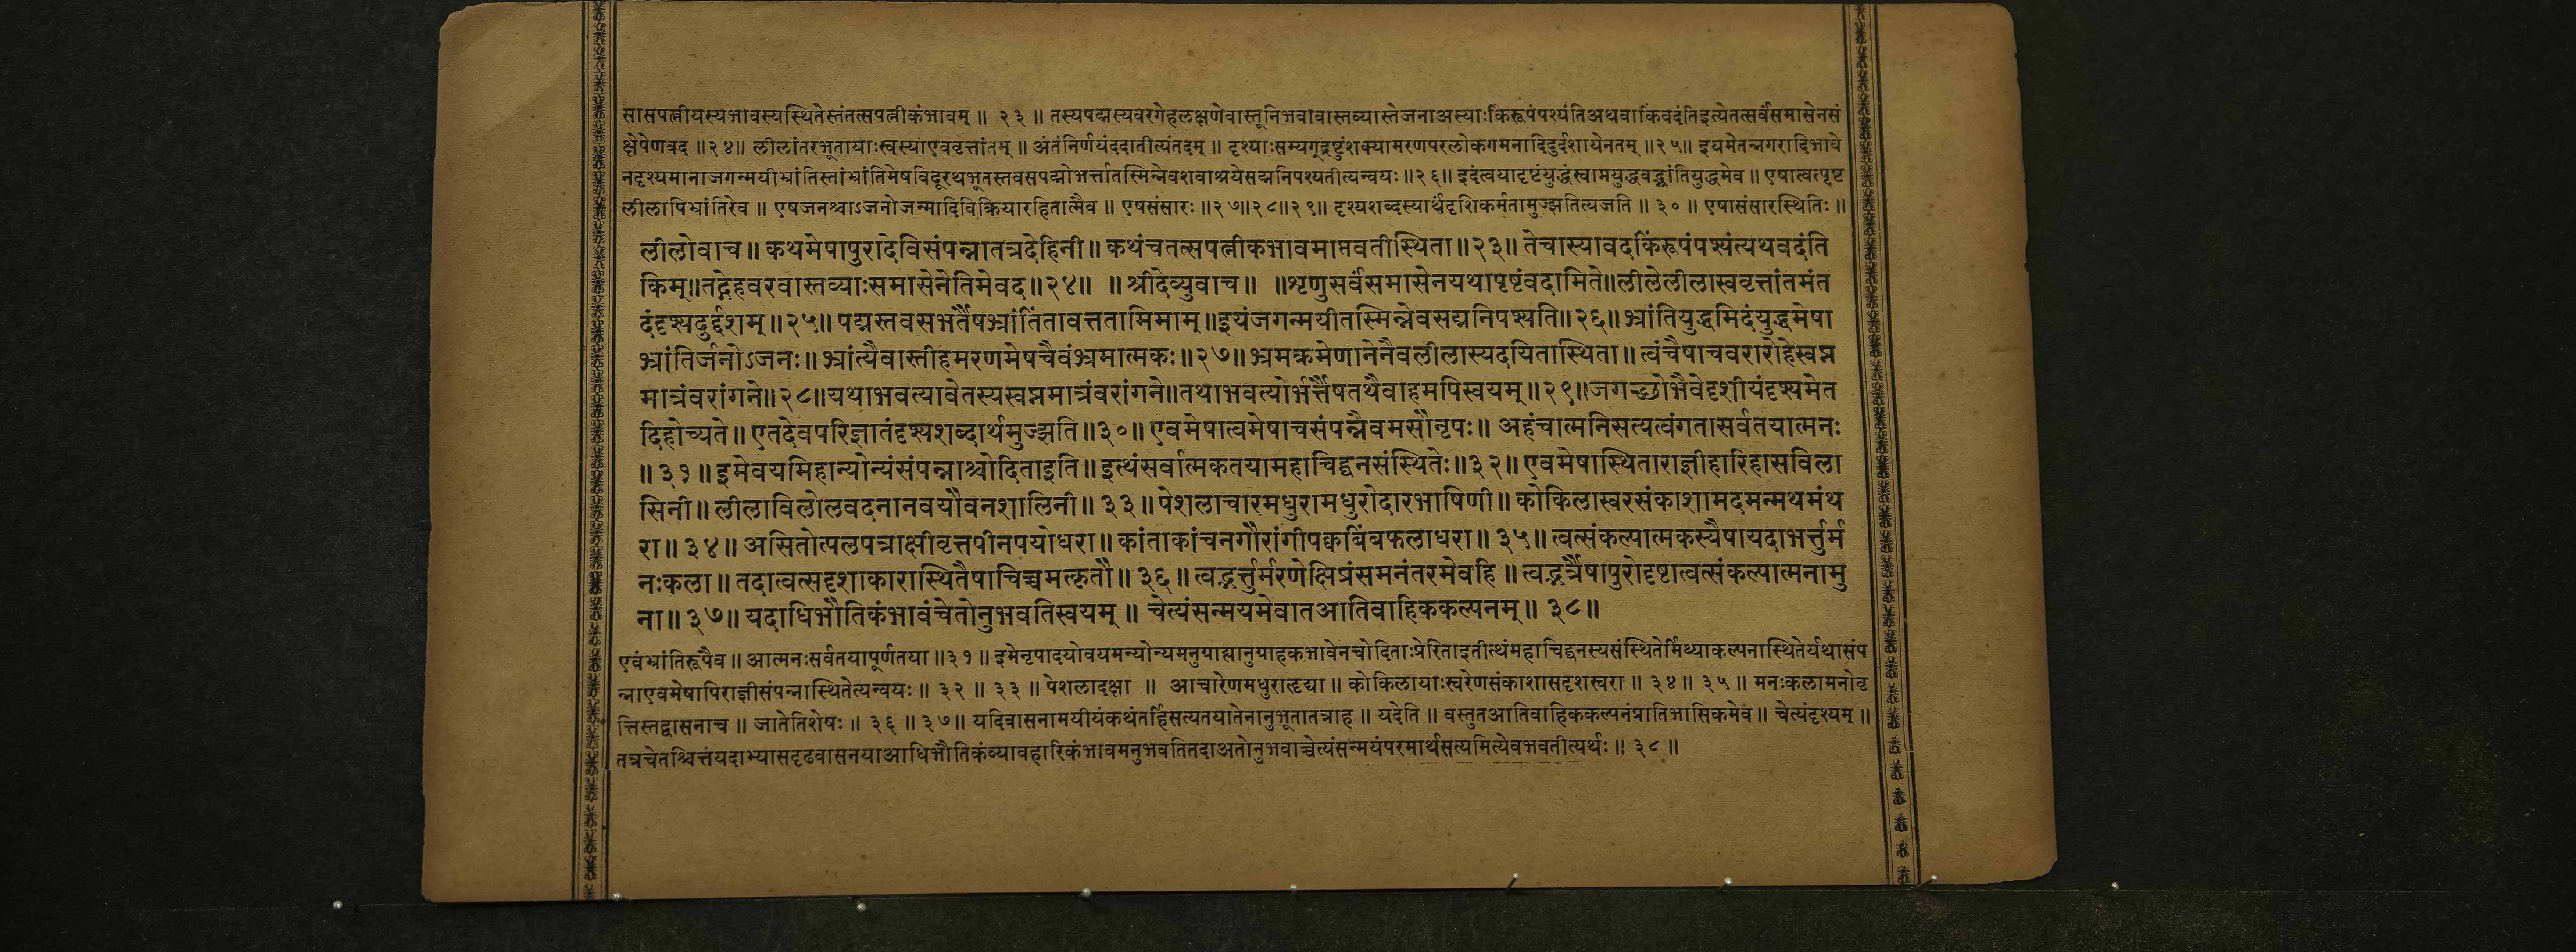 सासपत्नीयस्यभावस्यस्थितेस्तंतत्सपत्नीकंभावम् ॥ २३ ॥ तस्यपद्मस्यवरगेहलक्षणेवास्तूनिभवावास्तव्यास्तेजनाअस्याःकिंरूपंपश्यंतिअथवाकिंवदंतिइत्येतत्सर्वंसमासेनसं
क्षेपेणवद ॥२४॥ लीलांतरभूतायाःस्वस्याएववृत्तांतम् ॥ अंतंनिर्णयंददातीत्यंतदम् ॥ दृश्याःसम्यग्द्रष्टुंशक्यामरणपरलोकगमनादिदुर्दशायेनतम् ॥२५॥ इयमेतन्नगरादिभावे
नदृश्यमानाजगन्मयीभ्रांतिस्तांभ्रांतिमेषविदूरथभूतस्तवसपद्मोभर्त्तातस्मिन्नेवशवाश्रयेसद्मनिपश्यतीत्यन्वयः॥२६॥ इदंत्वयादृष्टंयुद्धंस्वाप्नयुद्धवद्भ्रांतियुद्धमेव ॥ एषात्वत्पृष्ट
लीलापिभ्रांतिरेव ॥ एषजनश्चाऽजनोजन्मादिविक्रियारहितात्मैव ॥ एषसंसारः ॥२७॥२८॥२९॥ दृश्यशब्दस्यार्थंदृशिकर्मतामुज्झतित्यजति ॥ ३० ॥ एषासंसारस्थितिः ॥
लीलोवाच॥ कथमेषापुरादेविसंपन्नातत्रदेहिनी॥ कथंचतत्सपत्नीकभावमाप्तवतीस्थिता॥२३॥ तेचास्यावदकिंरूपंपश्यंत्यथवदंति
किम्॥तद्गेहवरवास्तव्याःसमासेनेतिमेवद॥२४॥ ॥श्रीदेव्युवाच॥ ॥शृणुसर्वंसमासेनयथापृष्टंवदामिते॥लीलेलीलास्ववृत्तांतमंत
दंदृश्यदुर्द्दशम्॥२५॥ पद्मस्तवसभर्तैषभ्रांतिंतावत्ततामिमाम्॥इयंजगन्मयीतस्मिन्नेवसद्मनिपश्यति॥२६॥ भ्रांतियुद्धमिदंयुद्धमेषा
भ्रांतिर्जनोऽजनः॥ भ्रांत्यैवास्तीहमरणमेषचैवंभ्रमात्मकः॥२७॥ भ्रमक्रमेणानेनैवलीलास्यदयितास्थिता॥ त्वंचैषाचवरारोहेस्वप्न
मात्रंवरांगने॥२८॥यथाभवत्यावेतस्यस्वप्नमात्रंवरांगने॥तथाभवत्योर्भर्त्तैषतथैवाहमपिस्वयम्॥२९॥जगच्छोभैवेदृशीयंदृश्यमेत
दिहोच्यते॥ एतदेवपरिज्ञातंदृश्यशब्दार्थमुज्झति॥३०॥ एवमेषात्वमेषाचसंपन्नैवमसौनृपः॥ अहंचात्मनिसत्यत्वंगतासर्वतयात्मनः
॥३१॥ इमेवयमिहान्योन्यंसंपन्नाश्चोदिताइति॥ इत्थंसर्वात्मकतयामहाचिद्घनसंस्थितेः॥३२॥ एवमेषास्थिताराज्ञीहारिहासविला
सिनी॥ लीलाविलोलवदनानवयौवनशालिनी॥ ३३॥ पेशलाचारमधुरामधुरोदारभाषिणी॥ कोकिलास्वरसंकाशामदमन्मथमंथ
रा॥ ३४॥ असितोत्पलपत्राक्षीवृत्तपीनपयोधरा॥ कांताकांचनगौरांगीपक्वबिंबफलाधरा॥ ३५॥ त्वत्संकल्पात्मकस्यैषायदाभर्त्तुर्म
नःकला॥ तदात्वत्सदृशाकारास्थितैषाचिच्चमत्कृतौ॥ ३६॥ त्वद्भर्त्तुर्मरणेक्षिप्रंसमनंतरमेवहि॥ त्वद्भर्त्रैषापुरोदृष्टात्वत्संकल्पात्मनामु
ना॥ ३७॥ यदाधिभौतिकंभावंचेतोनुभवतिस्वयम्॥ चेत्यंसन्मयमेवातआतिवाहिककल्पनम्॥ ३८॥
एवंभ्रांतिरूपैव ॥ आत्मनःसर्वतयापूर्णतया ॥३१॥ इमेनृपादयोवयमन्योन्यमनुग्राह्यानुग्राहकभावेनचोदिताःप्रेरिताइतीत्थंमहाचिद्घनस्यसंस्थितेर्मिथ्याकल्पनास्थितेर्यथासंप
न्नाएवमेषापिराज्ञीसंपन्नास्थितेत्यन्वयः ॥ ३२ ॥ ३३ ॥ पेशलादक्षा ॥ आचारेणमधुराहृद्या ॥ कोकिलायाःस्वरेणसंकाशासदृशस्वरा ॥ ३४॥ ३५॥ मनःकलामनोवृ
त्तिस्तद्वासनाच ॥ जातेतिशेषः ॥ ३६ ॥ ३७॥ यदिवासनामयीयंकथंतर्हिसत्यतयातेनानुभूतातत्राह ॥ यदेति ॥ वस्तुतआतिवाहिककल्पनंप्रातिभासिकमेव॥ चेत्यंदृश्यम् ॥
तत्रचेतश्चित्तंयदाभ्यासदृढवासनयाआधिभौतिकंव्यावहारिकंभावमनुभवतितदाअतोनुभवाच्चेत्यंसन्मयंपरमार्थसत्यमित्येवभवतीत्यर्थः ॥ ३८ ॥